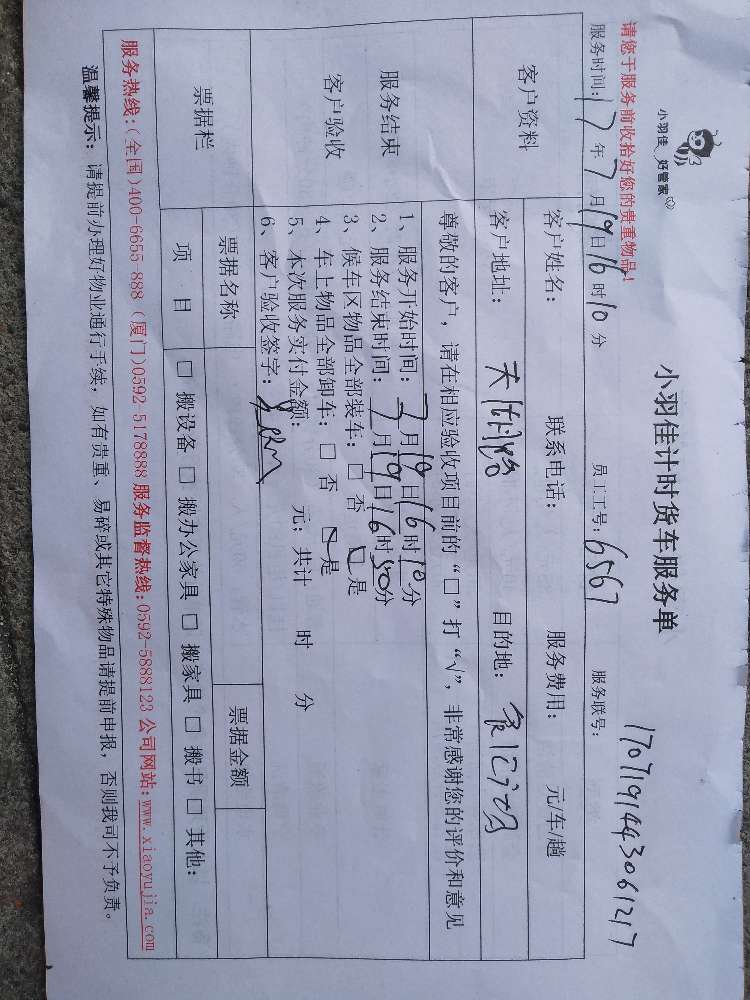 小羽佳 好管家
小羽佳计时货车服务单
请您于服务前收拾好您的贵重物品!
服务时间:17年7月19日16时10分 员工工号:6567 服务联号: 1707191443061217
客户资料
客户姓名: 联系电话: 服务费用: 元/车/趟
客户地址: 目的地:
尊敬的客户,请在相应验收项目前的“□”打“√”,非常感谢您的评价和意见
服务结束
客户验收
1、服务开始时间:7月19日16时10分
2、服务结束时间:7月19日16时50分
3、候车区物品全部装车:□ 否 ☑ 是
4、车上物品全部卸车:□ 否 ☑ 是
5、本次服务实付金额: 元; 共计 时 分
6、客户验收签字:
票据栏
票据名称 票据金额
项 目 □ 搬设备 □ 搬办公家具 □ 搬家具 □ 搬书 □ 其他:
服务热线:(全国)400-6655 888 (厦门)0592-5178888 服务监督热线:0592-5888123 公司网站:www.xiaoyujia.com
温馨提示: 请提前办理好物业通行手续,如有贵重、易碎或其它特殊物品请提前申报,否则我司不予负责。